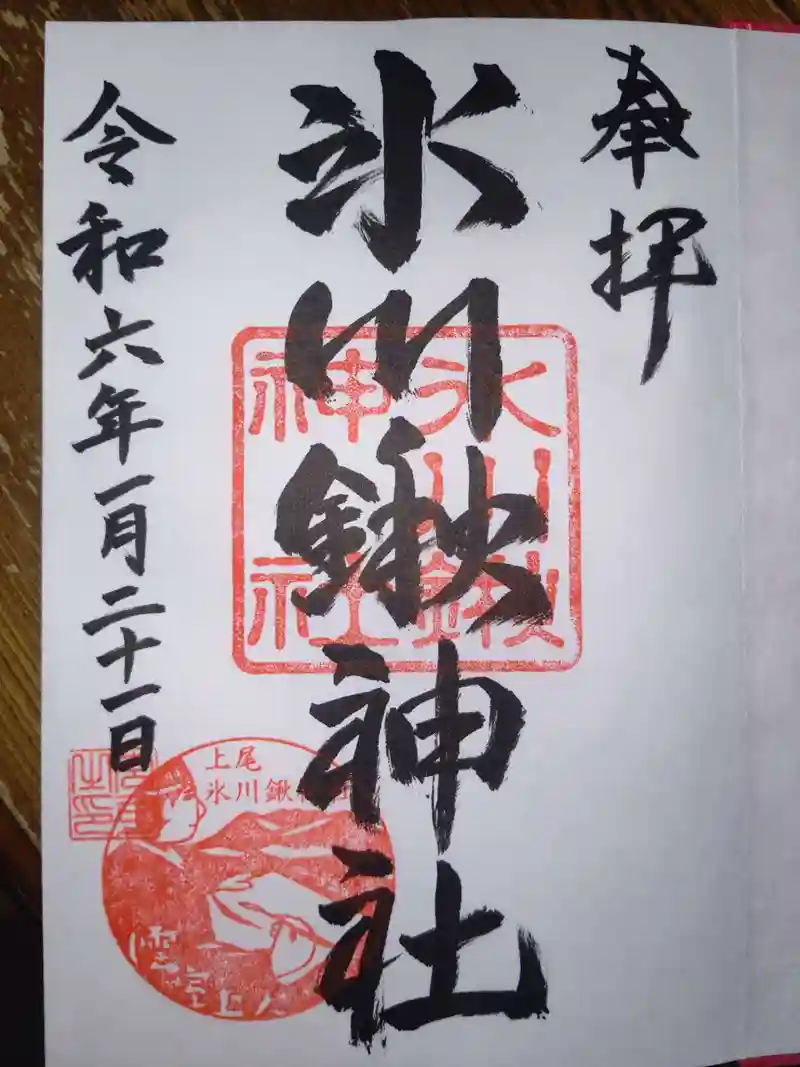 奉拝
氷川鍬神社
令和六年一月二十一日
氷川鍬
神社
上尾
氷川鍬神社
雲室上人